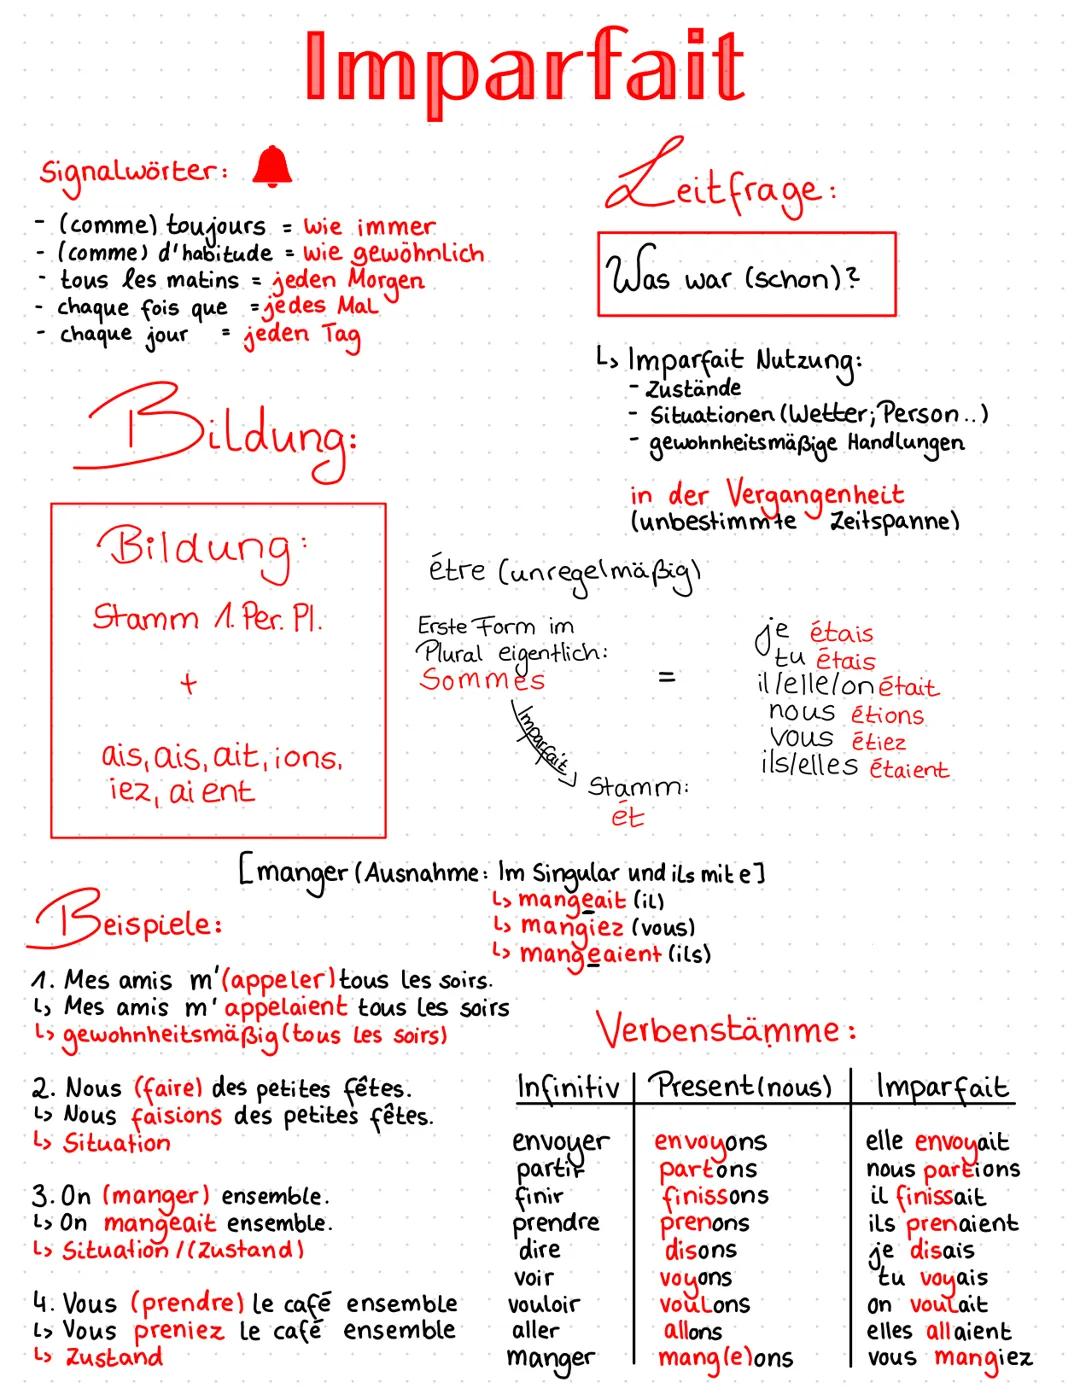 Imparfait
Signalwörter:
- (comme) toujours = wie immer
- (comme) d'habitude = wie gewöhnlich
- tous les matins = jeden Morgen
- chaque fois que = jedes Mal
- chaque jour = jeden Tag
Leitfrage:
Was war (schon)?
↳ Imparfait Nutzung:
- Zustände
- Situationen (Wetter; Person..)
- gewohnheitsmäßige Handlungen
in der Vergangenheit
(unbestimmte Zeitspanne)
Bildung:
Bildung:
Stamm 1. Per. Pl.
+
ais, ais, ait, ions,
iez, aient
étre (unregelmäßig)
Erste Form im
Plural eigentlich:
Sommes
Imparfait
Stamm:
ét
=
je étais
tu étais
il/elle/on était
nous étions
vous étiez
ils/elles étaient
[manger (Ausnahme: Im Singular und ils mit e]
↳ mangeait (il)
↳ mangiez (vous)
↳ mangeaient (ils)
Beispiele:
1. Mes amis m'(appeler) tous les soirs.
↳ Mes amis m' appelaient tous les soirs
↳ gewohnheitsmäßig (tous les soirs)
2. Nous (faire) des petites fêtes.
↳ Nous faisions des petites fêtes.
↳ Situation
3. On (manger) ensemble.
↳ On mangeait ensemble.
↳ Situation /(Zustand)
4. Vous (prendre) le café ensemble
↳ Vous preniez le café ensemble
↳ Zustand
Verbenstämme:
Infinitiv Present(nous) Imparfait
envoyer envoyons elle envoyait
partir partons nous partions
finir finissons il finissait
prendre prenons ils prenaient
dire disons je disais
voir voyons tu voyais
vouloir voulons on voulait
aller allons elles allaient
manger mang(e)ons vous mangiez